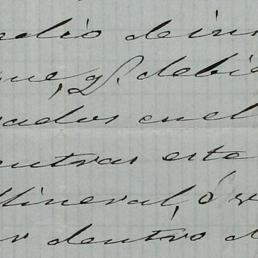 edio de in
que, q. debie
rados en el
entras este
Mineral, ó
r dentro d